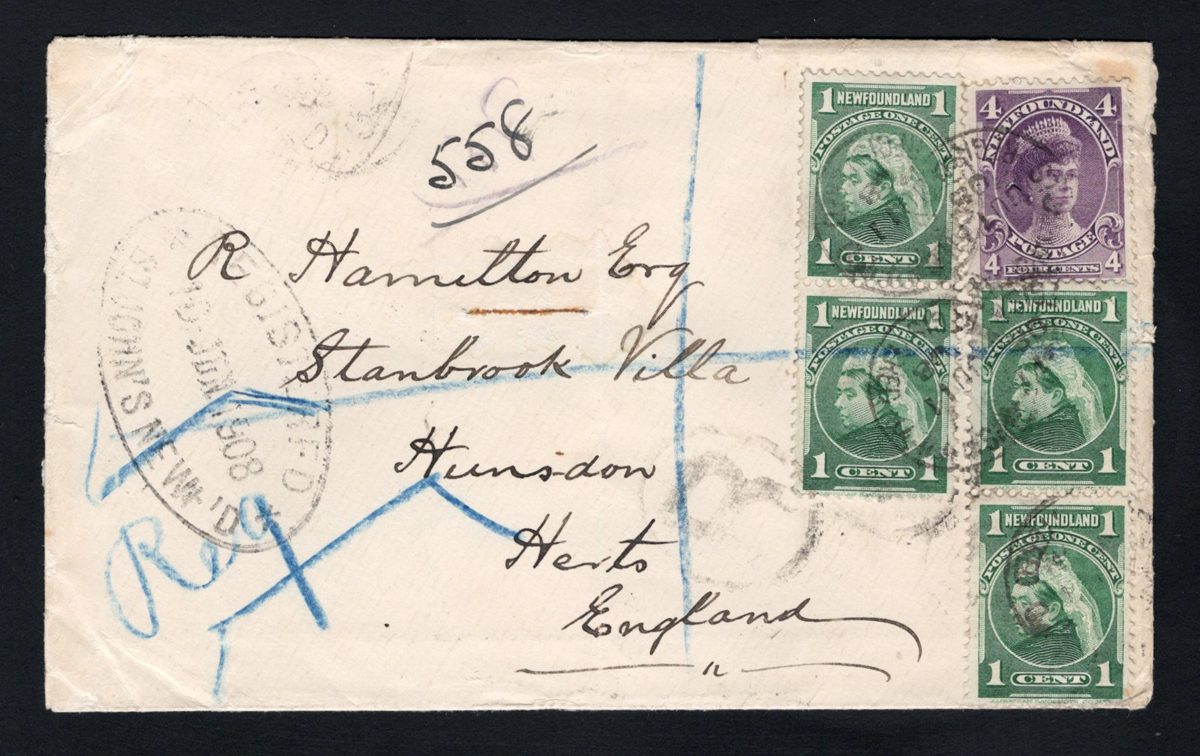 558
R Hamilton Esq
Stanbrook Villa
Hunsdon
Herts
England
Reg
REGISTERED
1908
ST. JOHN'S NEWF'D.
1 NEWFOUNDLAND 1
POSTAGE ONE CENT
1 CENT 1
4 4
NEWFOUNDLAND
POSTAGE
4 FOUR CENTS 4
1 NEWFOUNDLAND 1
POSTAGE ONE CENT
1 CENT 1
1 NEWFOUNDLAND 1
POSTAGE ONE CENT
1 CENT 1
1 NEWFOUNDLAND 1
POSTAGE ONE CENT
1 CENT 1